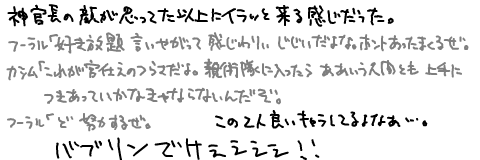 神官長の顔が思ってた以上にイラッと来る感じだった。
フーラル「好き放題言いやがって感じわりぃじじいだよな。ホントあったまくるぜ。
カシム「これが宮仕えのつらさだよ。親衛隊に入ったらああいう人間とも上手に
つきあっていかなきゃならないんだぞ。
フーラル「ど 努力するぜ。 この2人良いキャラしてるよなぁ…。
バブリンでけぇシシシ!!